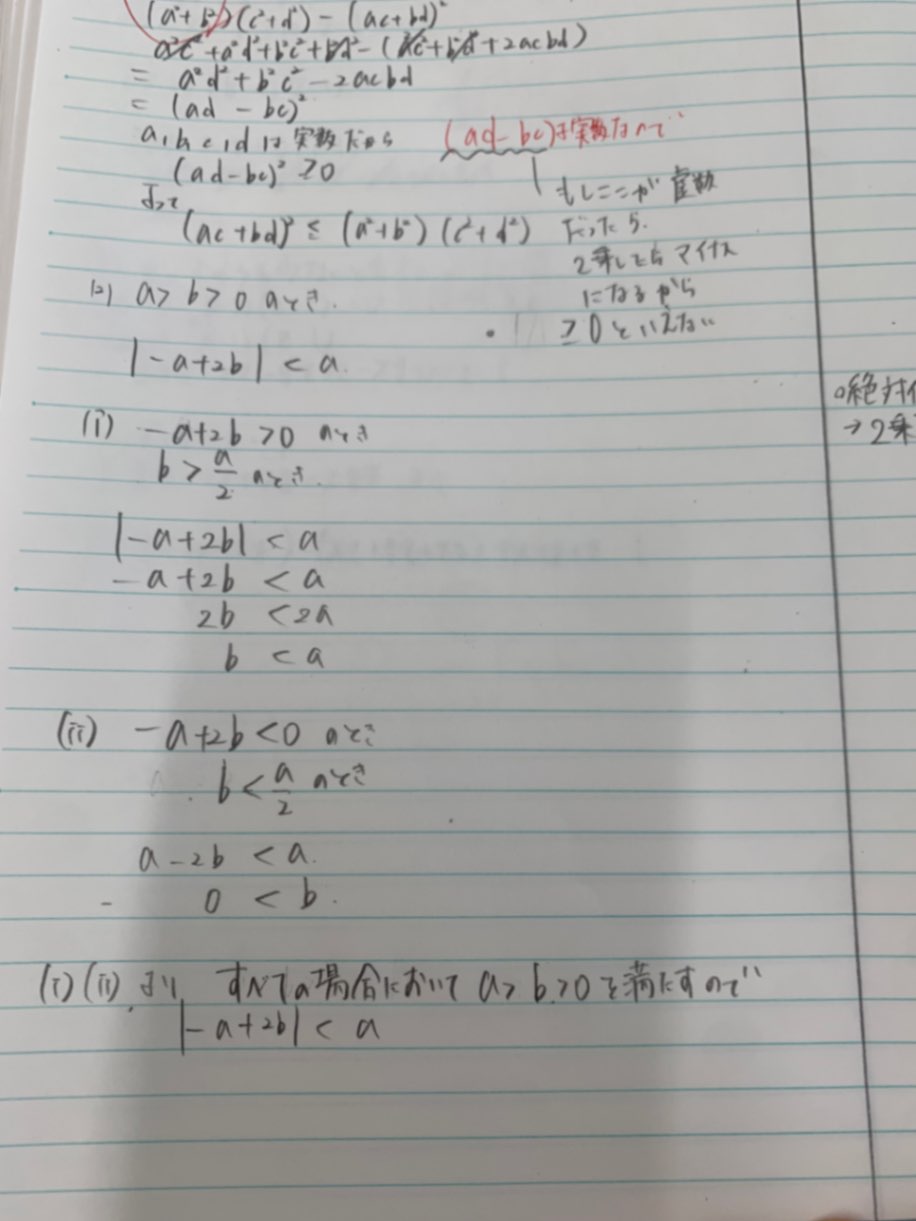 (a²+b²)(c²+d²) - (ac+bd)²
a²c²+a²d²+b²c²+b²d²-(a²c²+b²d²+2acbd)
= a²d²+b²c²-2acbd
= (ad-bc)²
a,b,c,dは実数だから
(ad-bc)は実数なので
(ad-bc)² ≧0
もしここが虚数
だったら
2乗したらマイナス
になるから
≧0といえない
よって
(ac+bd)² ≦ (a²+b²)(c²+d²)
(2) a>b>0のとき.
|-a+2b| < a.
(i) -a+2b>0のとき
b > a/2 のとき.
|-a+2b| < a
-a+2b < a
2b < 2a
b < a
(ii) -a+2b<0のとき
b < a/2 のとき
a-2b < a.
0 < b.
(i)(ii)より すべての場合において a>b>0を満たすので
|-a+2b| < a
○絶対
→2乗